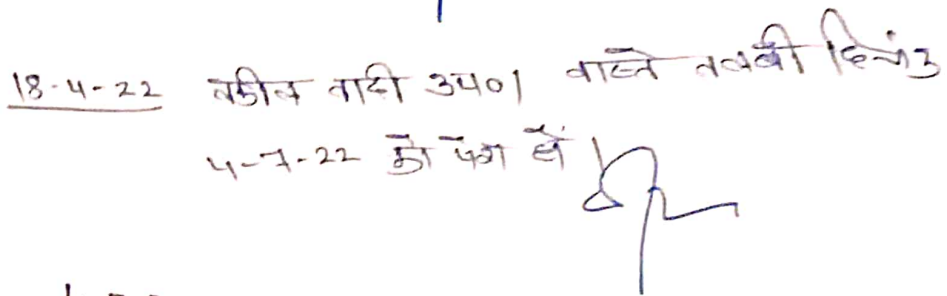 18-4-22 वकील वादी उप०। वास्ते तलबी दिनांक
4-7-22 को पेश हो